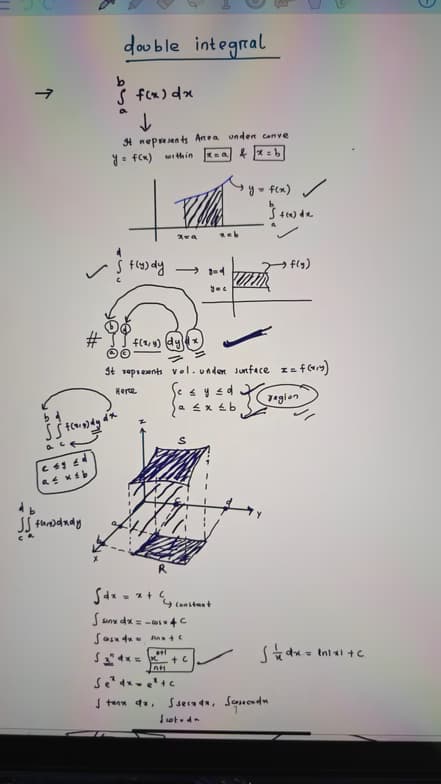 double integral
→ ∫ₐᵇ f(x) dx
↓
It represents Area under curve
y = f(x) within x=a & x=b
y = f(x)
∫ₐᵇ f(x) dx
x=a x=b
∫꜀ᵈ f(y) dy → y=d → f(y)
y=c
# ∫ₐᵇ ∫꜀ᵈ f(x,y) dy dx
It represents vol. under surface z = f(x,y)
Here
{c ≤ y ≤ d
a ≤ x ≤ b} region
∫ₐᵇ ∫꜀ᵈ f(x,y) dy dx
c ≤ y ≤ d
a ≤ x ≤ b
∫꜀ᵈ ∫ₐᵇ f(x,y) dx dy
z
S
c d y
a
b
x
R
∫dx = x + c
↳ constant
∫ sinx dx = -cosx + c
∫ cosx dx = sinx + c
∫ xⁿ dx = xⁿ⁺¹/n+1 + c
∫ 1/x dx = ln|x| + c
∫ eˣ dx = eˣ + c
∫ tanx dx, ∫ secx dx, ∫ cosecx dx
∫ cotx dx